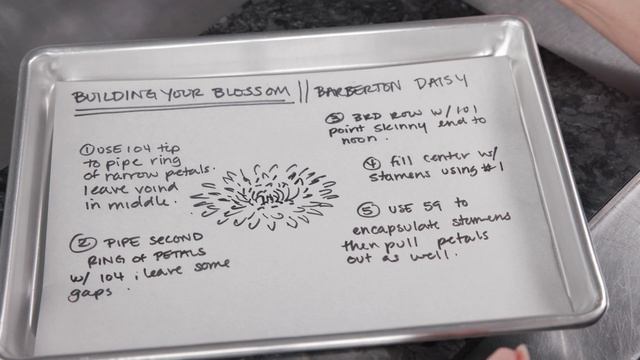 BUILDING YOUR BLOSSOM || BARBERTON DAISY
① USE 104 tip
to pipe ring
of narrow petals.
leave void
in middle.
② PIPE SECOND
RING OF PETALS
w/ 104 ; leave some
gaps.
③ 3RD ROW W/ 101
point skinny end to
noon.
④ fill center w/
stamens using #1
⑤ USE 59 to
encapsulate stamens
then pull petals
out as well.